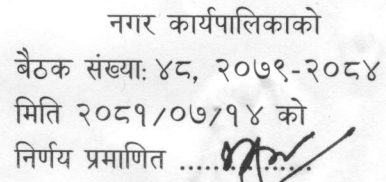 नगर कार्यपालिकाको
बैठक संख्या: ४८, २०७९-२०८४
मिति २०८१/०७/१४ को
निर्णय प्रमाणित ..............